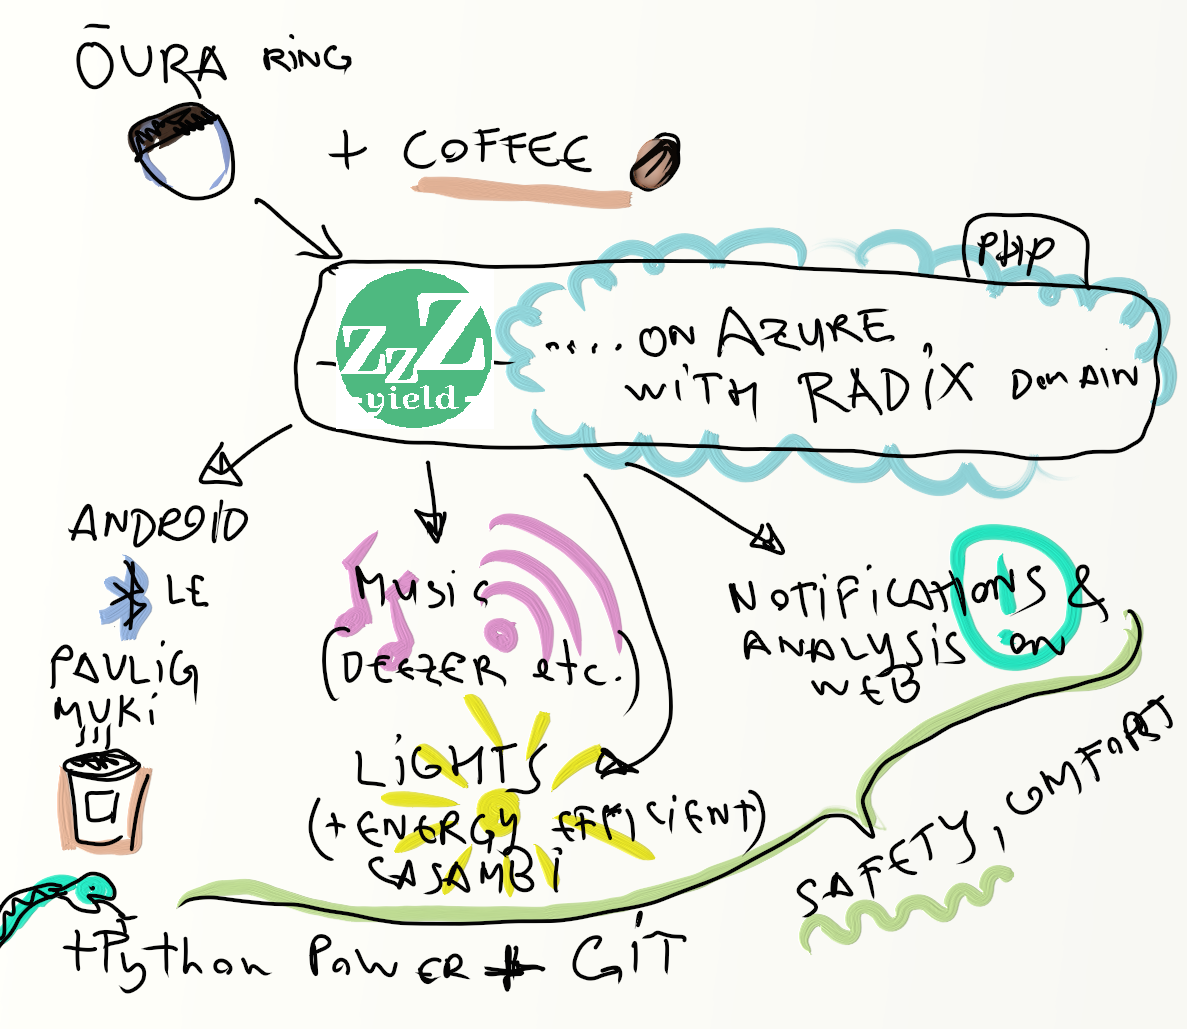 ŌURA RING
+ COFFEE
PHP
zzZ
-yield-
..... ON AZURE
WITH RADIX DOMAIN
ANDROID
LE
PAULIG
MUKi
MUSiC
(DEEZER etc.)
NOTIFICATIONS &
ANALYSIS on
WEB
LiGHTS
(+ ENERGY EFFICIENT)
CASAMBi
SAFETY, COMFORT
+Python POWER + GIT